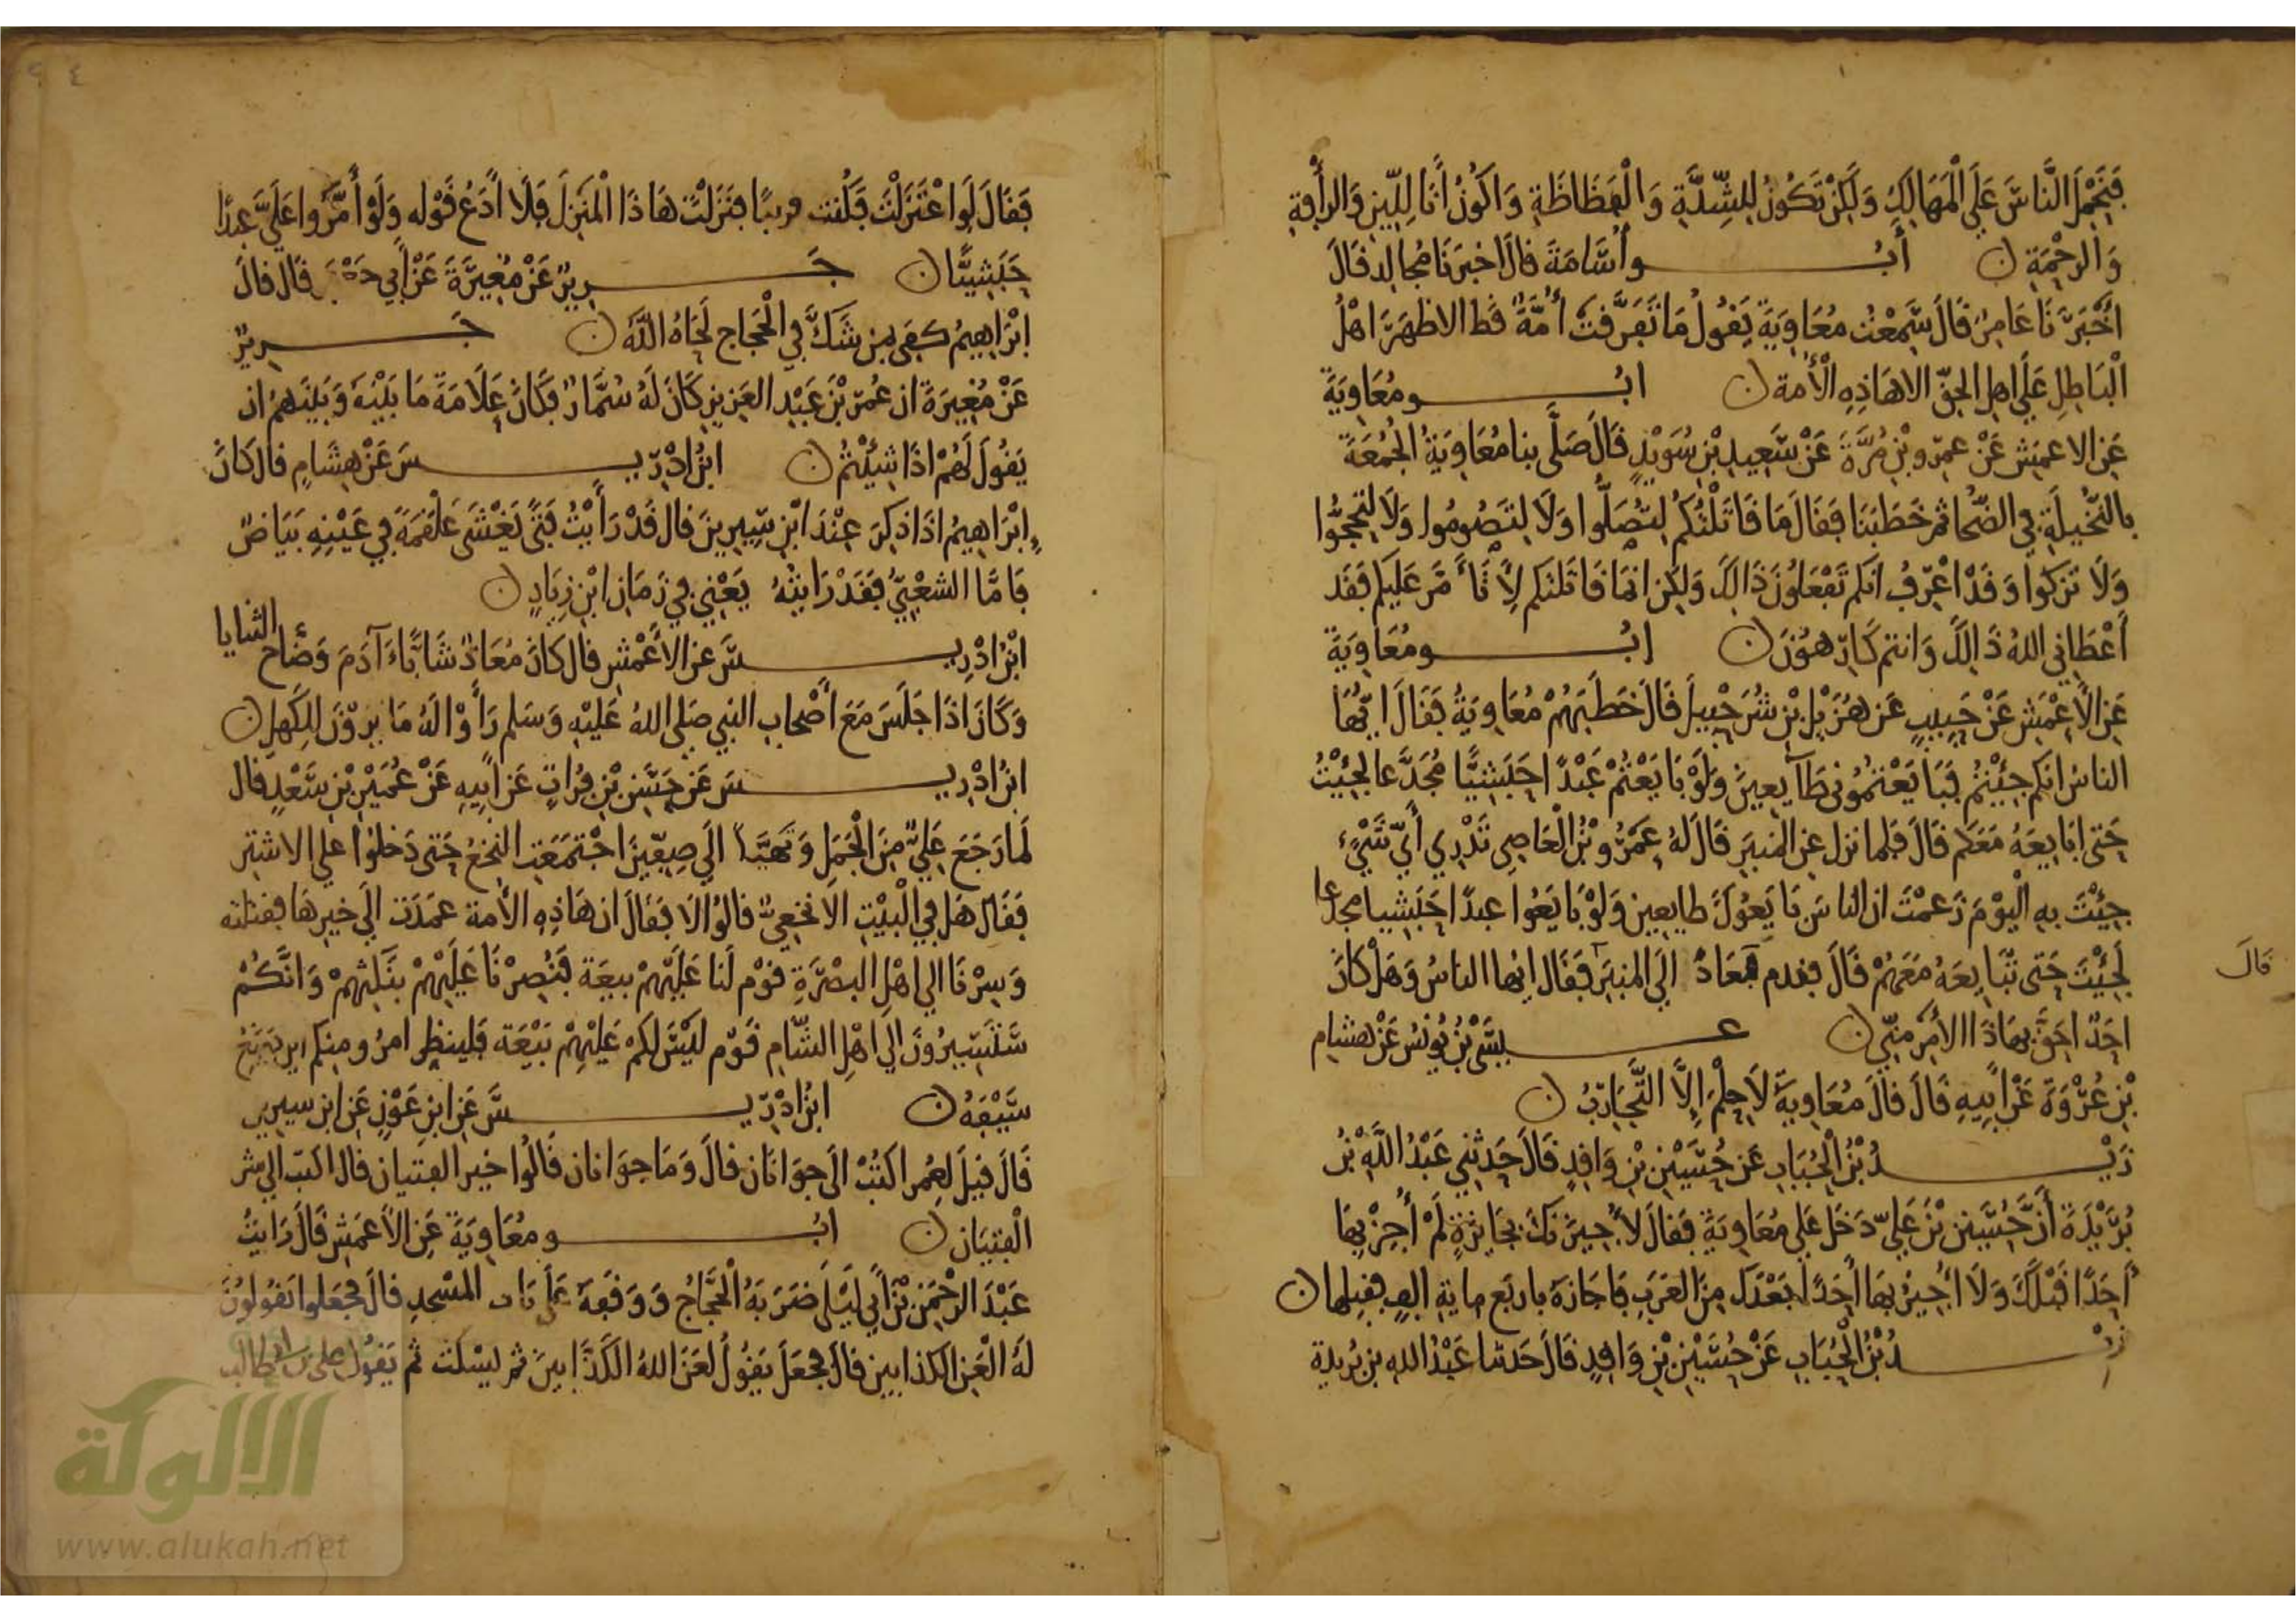 فَنَحْمِلَ النَّاسَ عَلَى الْمَهَالِكِ وَلَكِنْ تَكُونُ لِلشِّدَّةِ وَالْفَظَاظَةِ وَاَكُونُ أَنَا لِلِّينِ وَالرَأْفَةِ
وَالرحْمَةِ ن أَبُو أُسَامَةَ قالَ اخبَرَنَا مُجالِد قَالَ
أَخْبَرَنَا عَامِرٌ قَالَ سَمِعْتُ مُعَاوِيَةَ يَقُولُ مَا تَفَرَّقَتْ أُمَّةٌ قَط الا ظهَرَ اَهْلُ
الْبَاطِلِ عَلَى اهلِ الحقّ الا هَاذِهِ الْأُمة ن ابُو مُعَاوِيَةَ
عَنِ الاعمَشِ عَنْ عمرِو بْنِ مُرَّةَ عَنْ سَعِيدِ بْنِ سُوَيْدٍ قَالَ صَلَّى بِنا مُعَاوِيَةُ الْجُمُعَةَ
بالنُّخَيلَةِ في الضُّحَا ثم خَطَبَنَا فَقَالَ مَا قَاتَلْتُكُم لِتُصَلُّوا وَلَا لِتَصُومُوا وَلَا لِتَحُجُّوا
وَلَا تزكوا وَقَدْ اعْرِفُ انكم تَفْعَلُونَ ذَالِكَ وَلَكِن انمَا قَاتَلْتكم لِأَتَأَمَّرَ عَلَيكم فَقَد
أَعْطَانِي اللهُ ذَالِكَ وَانتم كَارِهُونَ ن ابُو مُعَاوِيَةَ
عَنِ الأَعْمَشِ عَنْ حَبِيبٍ عَن هُزَيْلِ بْنِ شُرَحْبِيلَ قَالَ خَطَبَهُمْ مُعَاوِيَةُ فَقَالَ ايُّهَا
الناسُ انكم جِئْتُمْ فَبَايَعْتُمُونِي طَآيِعِينَ وَلَوْ بَايَعْتُمْ عَبْدًا حَبَشِيًّا مُجَدَّعا لجِئْتُ
حَتى ابَايِعَهُ مَعَكم قَالَ فَلما نزل عَنِ المنبَرِ قَالَ لهُ عَمْرُو بْنُ الْعَاصِى تَدْرِي أَيَّ شَيْءٍ
جِئْتَ بِهِ الْيَوْمَ زَعمْتَ ان الناسَ بَايَعُوكَ طايِعِين وَلَوْ بَايَعُوا عبدًا حَبَشِيا مجدعا
لَجِئْتَ حَتى تُبَايِعَهُ مَعَهُمْ قَالَ فندم فعَادَ الَى المنبَر فَقَال ايها الناسُ وَهَلْ كانَ
قالَ
احَدٌ احَقّ بِهَاذَا الأمْرِ مِنِّي ن عِيسَى بْنُ يُونُسَ عَنْ هشام
بْنِ عُرْوَةَ عَنْ أَبِيهِ قَالَ قالَ مُعَاوِيَةَ لَا حِلْمَ إِلَّا التَّجَارِبُ ن
زَيْدُ بْنُ الْحُبَابِ عَن حُسَيْنِ بْنِ وَاقِدٍ قَالَ حَدثنِي عَبْدُ اللَّهِ بْنُ
بُرَيْدَةَ أَنَّ حُسَينَ بْنَ عَلِيّ دَخَلَ عَلى مُعَاوِيَةَ فَقالَ لأُجِيزَنَّكَ بجَايِزَةٍ لَمْ أُجِزْ بِهَا
أَحَدًا قَبْلَكَ وَلَا أُجِيزُ بِهَا أَحَدًا بَعْدَكَ مِنَ العَرَبِ فَاجَازَهُ باربَع ماية الفٍ فقبِلها ن
زيْدُ بْنُ الْحُبَابِ عَنْ حُسَيْنِ بْنِ وَاقِدٍ قَالَ حَدثنا عَبْدُ اللهِ بن بُريدة
فَقَالَ لَوِ اعْتَزَلْتَ فَكُنت قريبًا فنَزَلْتَ هَاذَا الْمَنْزِلَ فَلَا أَدَعُ قَوْله وَلَوْ أَمَّرُوا عَلَيَّ عبدًا
حَبَشِيًّا ن جَرِيرٌ عَنْ مُغِيرَةَ عَنْ أَبِي قَالَ قالَ
ابْرَاهِيمُ كَفَى بِمَن شَكَّ فِي الْحَجاج لَحَاهُ اللَّهُ ن جَرِيرٌ
عَنْ مُغِيرَةَ ان عُمَرَ بْنَ عَبْدِ العَزِيزِ كَانَ لَهُ سُمَّارٌ فَكَانَ عَلَامَةَ مَا بَيْنَهُ وَبَيْنَهُمْ ان
يَقُولَ لَهُمْ اذَا شِئْتُمْ ن ابْنُ ادْرِيسَ عَنْ هِشَامٍ قالَ كَانَ
ابْرَاهِيمُ اذَا ذكِرَ عِنْدَ ابْنِ سِيرِينَ قالَ قَدْ رَأَيْتُ فَتًى يَغْشَى عَلْقَمَةَ فِي عَيْنِهِ بَيَاضٌ
فَامَّا الشعْبِيُّ فَقَدْ رَايتُهُ يَعْنِي في زَمَانِ ابْنِ زِيَادٍ ن
ابْنُ ادْرِيسَ عَنِ الأَعْمَشِ قالَ كانَ مُعَاذٌ شَابًّا آدَمَ وَضَّاح الثنايا
وَكَانَ اذَا جَلَسَ مَعَ أَصْحَابِ النبي صَلى اللهُ عَلَيْهِ وَسَلم رَأَوْا لَهُ مَا يرَوْنَ لِلكَهلِ ن
ابْنُ ادْرِيسَ عَن حَسَنِ بْنِ فُرَاتٍ عَن أَبِيهِ عَنْ عُمَيْرِ بْنِ سَعْدٍ قال
لَمَا رَجَعَ عَلِيٌّ مِنَ الْجَمَلِ وَتَهَيَّأَ الَى صِفِّينَ اجْتَمَعَتِ النخعُ حَتى دَخلوا على الاشتر
فَقَالَ هَل فِي الْبَيْتِ الَا نخعِيٌّ قالُوا لَا فَقَالَ ان هَاذِهِ الأُمة عَمَدَت الَى خيرِهَا فقتلته
وَسِرْنَا الى اهْلِ البصْرَةِ قوْم لَنا عَلَيْهِمْ بيعَة فَنُصِرْنَا عَلَيْهِمْ بنَكثِهِمْ وَانَّكُمْ
سَتَسِيرُونَ الى اهْلِ الشَّامِ قَوْم لَيْسَ لَكمْ عَلَيْهِمْ بَيْعَة فَلينظر امرُو منكم اين يَضَعُ
سَيْفَهُ ن ابْنُ ادْرِيسَ عَنِ ابنِ عَوْنٍ عَنِ ابن سيرين
قَالَ قيلَ لِعُمر اكْتُبْ الَى جوَانَان قالَ وَمَا جوَانان قَالُوا خير الفتيان قالَ اكتب الى شر
الْفِتيَان ن ابُو مُعَاوِيَةَ عَنِ الأَعمَشِ قَالَ رَايتُ
عَبْدَ الرحْمَنِ بْنَ أَبِي لَيْلَى ضَرَبَهُ الْحَجَّاجُ وَوَقَفَهُ عَلَى باب المسْجدِ قالَ فجعَلوا يَقُولُونَ
لَهُ الْعَنِ الكذابين قالَ فَجَعَلَ يَقُولُ لَعَنَ اللهُ الكَذَّابِينَ ثم يَسْكُت ثم يَقُول على بن ابى طالب
الألوكة
www.alukah.net